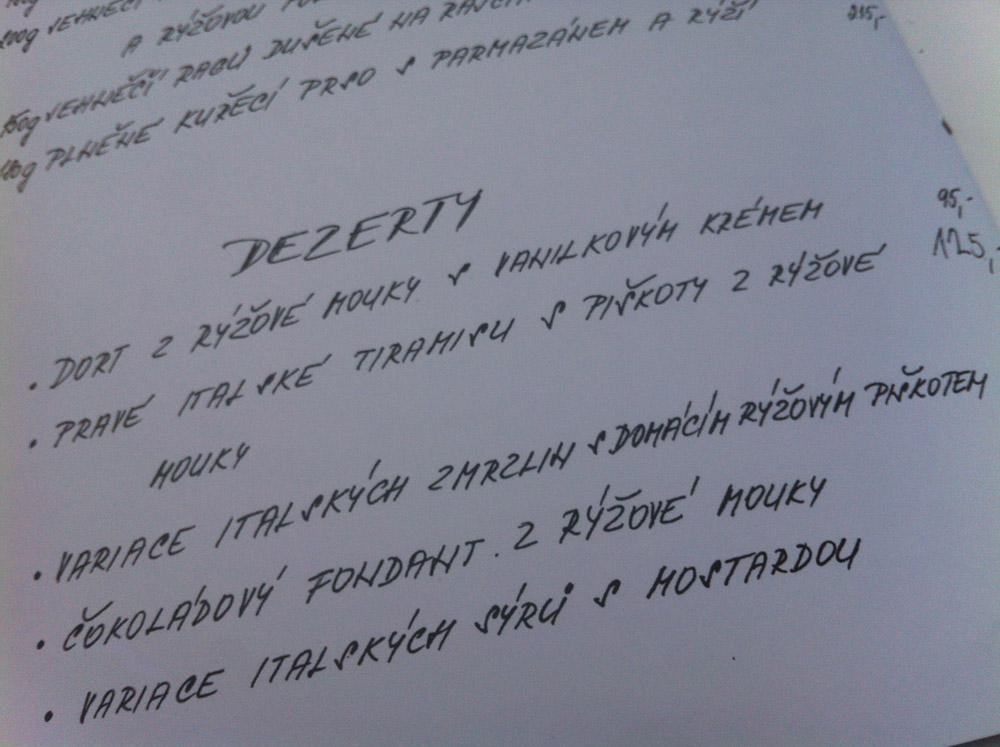 A RÝŽOVOU
JEHNĚČÍ RAGÚ DUŠENÉ NA
PLNĚNÉ KUŘECÍ PRSO S PARMAZÁNEM A RÝŽÍ 215,-
DEZERTY
• DORT Z RÝŽOVÉ MOUKY S VANILKOVÝM KRÉMEM 95,-
• PRAVÉ ITALSKÉ TIRAMISU S PIŠKOTY Z RÝŽOVÉ 125,-
MOUKY
• VARIACE ITALSKÝCH ZMRZLIN S DOMÁCÍM RÝŽOVÝM PIŠKOTEM
• ČOKOLÁDOVÝ FONDANT. Z RÝŽOVÉ MOUKY
• VARIACE ITALSKÝCH SÝRŮ S MOSTARDOU